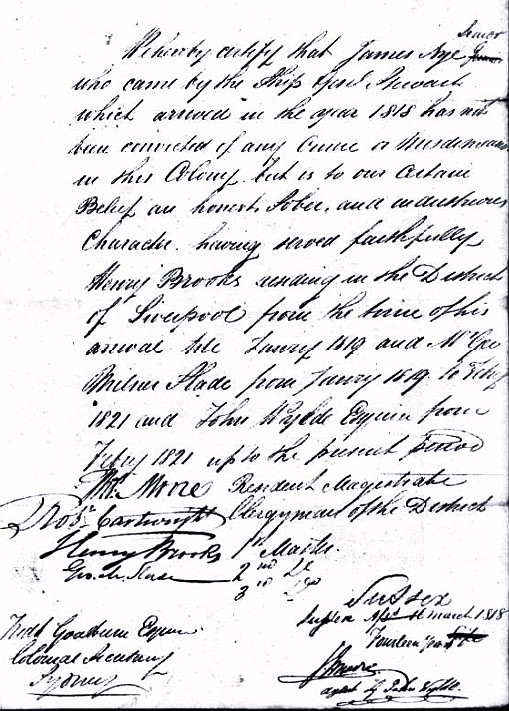 Senior
We hereby certify that James Nye
who came by the Ship Genl Stewart
which arrived in the year 1818 has not
been convicted of any Crime or Misdemeanor
in this Colony but is to our Certain
Belief an honest, Sober, and industrious
Character. having served faithfully
Henry Brooks residing in the District
of Liverpool from the time of his
arrival till Janry 1819 and Mr Geo
Milner Slade from Janry 1819 to Feby
1821 and John Wylde Esquire from
Feby 1821 up to the present period
Thos. Moore Resident Magistrate
Robt. Cartwright Clergyman of the District
Henry Brooks 1st Master.
Geo. M. Slade 2nd Do
3rd Do
Sussex
Sussex Asss 16 March 1818
Fourteen Years
Fredk Goulburn Esquire
Colonial Secretary
Sydney
agent of John Wylde